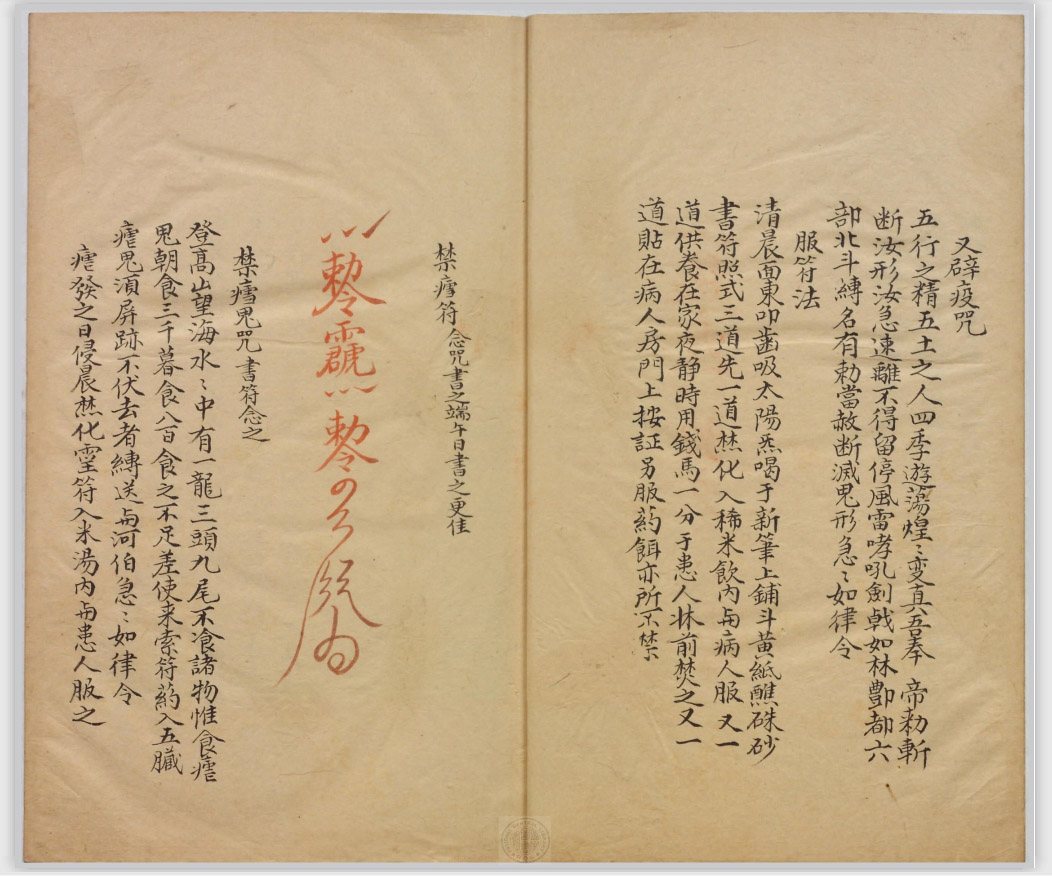 又辟疫咒
五行之精五土之人四季遊蕩煌〻变真吾奉　帝勅斬
断汝形汝急速離不得留停風雷哮吼劍戟如林酆都六
部北斗縛名有勅當赦断滅鬼形急〻如律令
服符法
清晨面東叩齒吸太陽炁喝于新筆上鋪斗黃紙醮硃砂
書符照式三道先一道焚化入稀米飲內與病人服又一
道供養在家夜静時用錢馬一分于患人牀前焚之又一
道貼在病人房門上按証另服葯餌亦所不禁
禁瘧符 念咒書之端午日書之更佳
勅令 勅令
禁瘧鬼咒 書符念之
登高山望海水〻中有一龍三頭九尾不飡諸物惟食瘧
鬼朝食三千暮食八百食之不足差使来索符葯入五臟
瘧鬼須屏跡不伏去者縛送与河伯急〻如律令
瘧發之日侵晨焚化靈符入米湯內与患人服之